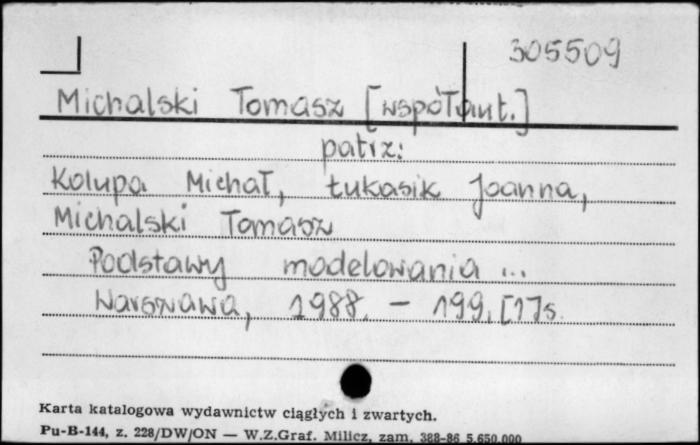 305509
Michalski Tomasz [współaut.]
patrz:
Kolupa Michał, Łukasik Joanna,
Michalski Tomasz
Podstawy modelowania ...
Warszawa, 1988. - 199, [1] s.
Karta katalogowa wydawnictw ciągłych i zwartych.
Pu-B-144, z. 228/DW/ON — W.Z.Graf. Milicz, zam. 388-86 5.650.000